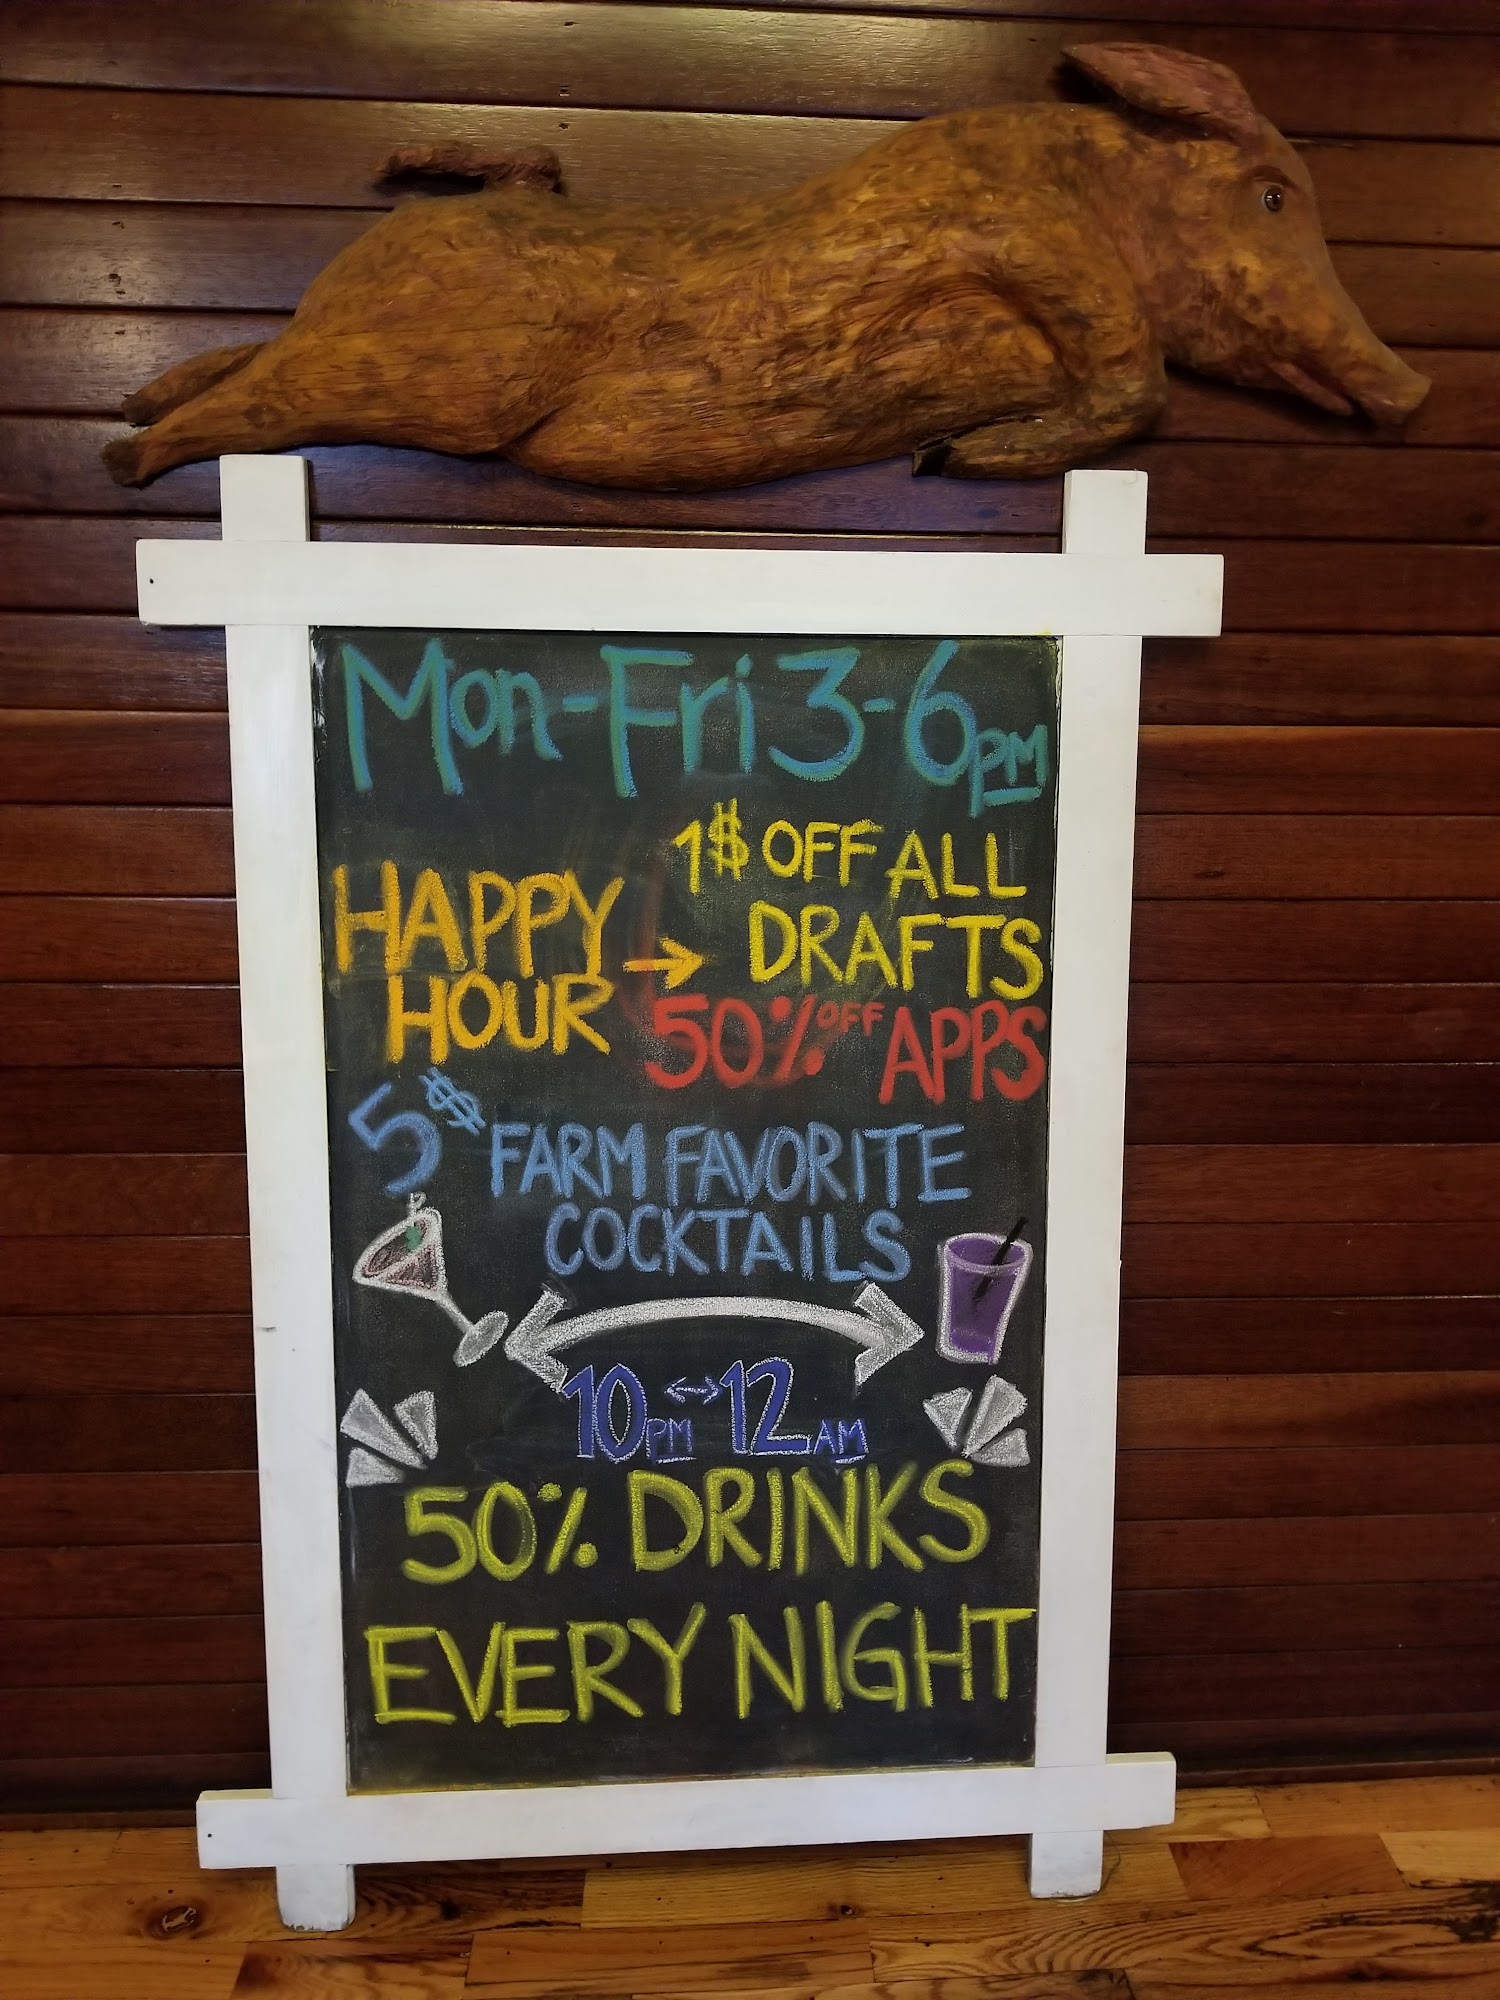 Mon-Fri 3-6pm
1$ OFF ALL
DRAFTS
HAPPY
HOUR →
50% OFF APPS
5$ FARM FAVORITE
COCKTAILS
10PM ↔ 12AM
50% DRINKS
EVERY NIGHT